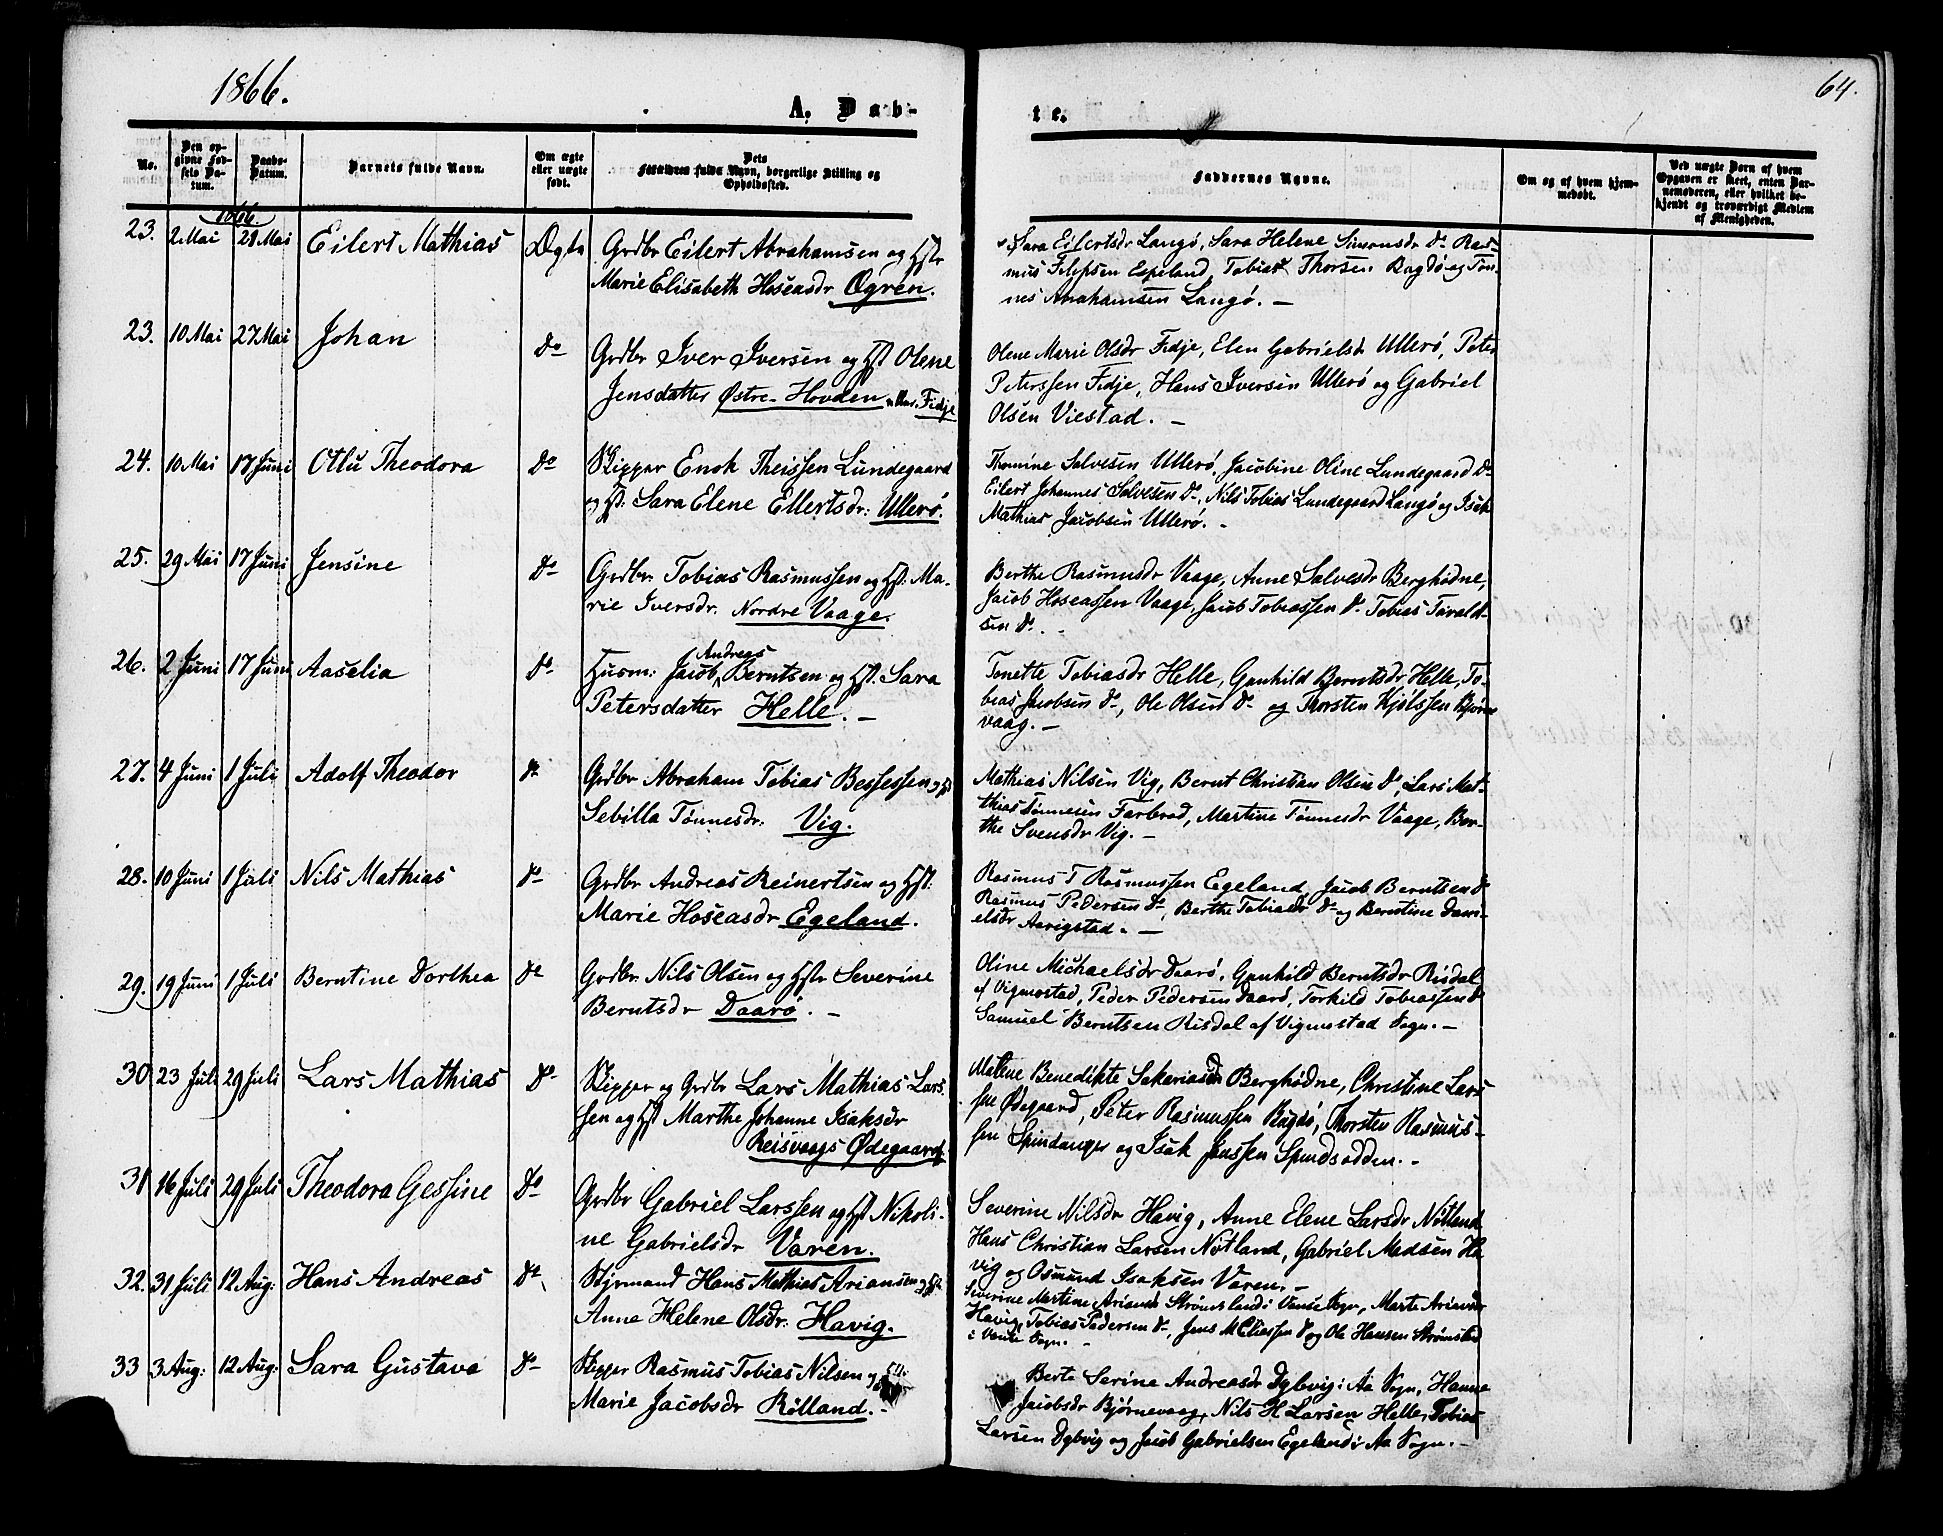 1866.
64.
A. Døb-
te.
No.
Den op-
givne Fød-
sels Da-
tum.
Daabs-
Datum.
Barnets fulde Navn.
Om ægte
eller uægte
født.
Dets
Forældres fulde Navn, borgerlige Stilling og
Opholdssted.
Faddernes Navne.
Om og af hvem hjem-
medøbt.
Ved uægte Børn af hvem
Opgaven er skeet, enten Bar-
nemoderen, eller hvilket be-
kjendt og troværdigt Medlem
af Menigheden.
1866
23. 2 Mai 21 Mai Eilert Mathias Ægte Grdbr Eilert Abrahamsen og Hstr
Marie Elisabeth Hoseasdr Øgren.
Sara Eilertsdr Langø, Sara Helene Simonsdr do Ras-
mus Espeland, Tobias Thorsen Bagdø og Tøn-
nes Langø. –
23. 10 Mai 27 Mai Johan do Grdbr Iver Iversen og Hst Olene
Jensdatter Østre-Hovden Fidje
Olene Marie Olsdr Fidje, Elen Gabrielsdr Ullerø, Peter
Peterssen Fidje, Hans Iversen Ullerø og Gabriel
Olsen Viestad. –
24. 10 Mai 17 Juni Theodora do Skipper Enok Theissen Lundegaard
og Hst: Sara Elene Ellertsdr: Ullerø.
Thomine Salvesen Ullerø, Jacobine Oline Lundegaard do
Eilert Johannes Salvesen do, Nils Tobias Lundegaard Langø og Isak
Mathias Jacobsen Ullerø. –
25. 29 Mai 17 Juni Jensine do Grdbr. Tobias Rasmussen og Hst: Ma-
rie Iversdr. Nordre Vaage.
Berthe Rasmusdr Vaage, Anne Salvesdr Berghødne,
Jacob Hoseassen Vaage, Jacob Tobiassen do Tobias Tarald-
sen do. –
26. 2 Juni 17 Juni Aaselia do Husm: Jacob Andreas Berntsen og Hst. Sara
Petersdatter Helle. –
Tonette Tobiasdr Helle, Gunhild Berntsdr Helle, To-
bias Jacobsen do, Ole Olsen do og Thorsten Kjølssen Bjørne
vaag. –
27. 4 Juni 1 Juli Adolf Theodor do Grdbr Abraham Tobias Bessesen og Hst
Sebilla Tønnesdr. Vig.
Mathias Nilsen Vig, Bernt Christian Olsen do, Lars Mat-
thias Tønnesen Farbrod, Martine Tønnesdr Vaage, Ber-
the Svensdr Vig. –
28. 10 Juni 1 Juli Nils Mathias do Grdbr Andreas Reinertsen og Hst:
Marie Hoseasdr Egeland.
Rasmus T Rasmussen Egeland, Jacob Berntsen do
Rasmus Pedersen do, Berthe Tobiasdr do og Berntine Dani-
elsdr Aarigstad. –
29. 19 Juni 1 Juli Berntine Dorthea do Grdbr. Nils Olsen og Hstr Severine
Berntsdr Daarø. –
Oline Michaelsdr Daarø, Gunhild Berntsdr Risdal
af Vigmostad, Peder Pedersen Daarø, Torkild Tobiassen do
Samuel Berntsen Risdal af Vigmostad Sogn. –
30 23 Juli 29 Juli Lars Mathias do Skipper og Grdbr Lars Mathias Lars
sen og Hst Marthe Johanne Isaksdr
Reisvaags Ødegaard
Malene Benedikte Sakariasdr Berghødne, Christine Lars
sen Ødegaard, Peter Rasmussen Bagdø, Thorsten Rasmus-
sen Spindanger og Isak Jenssen Spindsodden. –
31 16 Juli 29 Juli Theodora Gessine do Grdbr Gabriel Larssen og Hst Nikoli-
ne Gabrielsdr Varen.
Severine Nilsdr Havig, Anne Elene Larsdr Nøtland
Hans Christian Larsen Nøtland, Gabriel Madsen Ha
vig og Osmund Isaksen Varen. –
32. 31 Juli 12 Aug: Hans Andreas do Styrmand Hans Mathias Ariansen og Hstr
Anne Helene Olsdr: Havig.
Severine Martine Ariansdr Strømsland i Vanse Sogn, Marte Ariansdr
Havig, Tobias Pedersen do, Jens M Eliassen do og Ole Hansen Strømsland
i Vanse Sogn. –
33 3 Aug: 12 Aug: Sara Gustava do Skipper Rasmus Tobias Nilsen og Hst:
Marie Jacobsdr Rølland. –
Berte Serine Andreasdr Dybvig i Aa Sogn, Hanne
Jacobsdr Bjørnevaag, Nils H Larsen Helle, Tobias
Larsen Dybvig og Jacob Gabrielsen Egeland i Aa Sogn. –